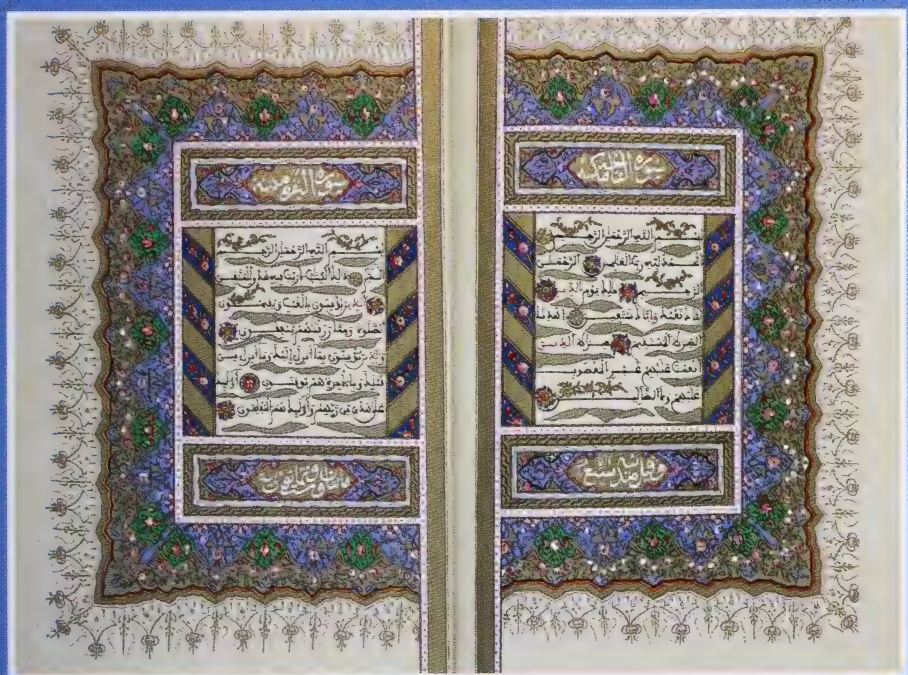 سورة الفاتحة
بسم الله الرحمن الرحيم
الحمد لله رب العالمين الرحمن
الرحيم ملك يوم الدين
إياك نعبد وإياك نستعين اهدنا
الصراط المستقيم صراط الذين
أنعمت عليهم غير المغضوب
عليهم ولا الضالين
سورة البقرة
بسم الله الرحمن الرحيم
الم ذلك الكتاب لا ريب فيه هدى للمتقين
الذين يؤمنون بالغيب ويقيمون
الصلوة ومما رزقنهم ينفقون
والذين يؤمنون بما أنزل إليك وما أنزل من
قبلك وبالآخرة هم يوقنون أولئك
على هدى من ربهم وأولئك هم المفلحون